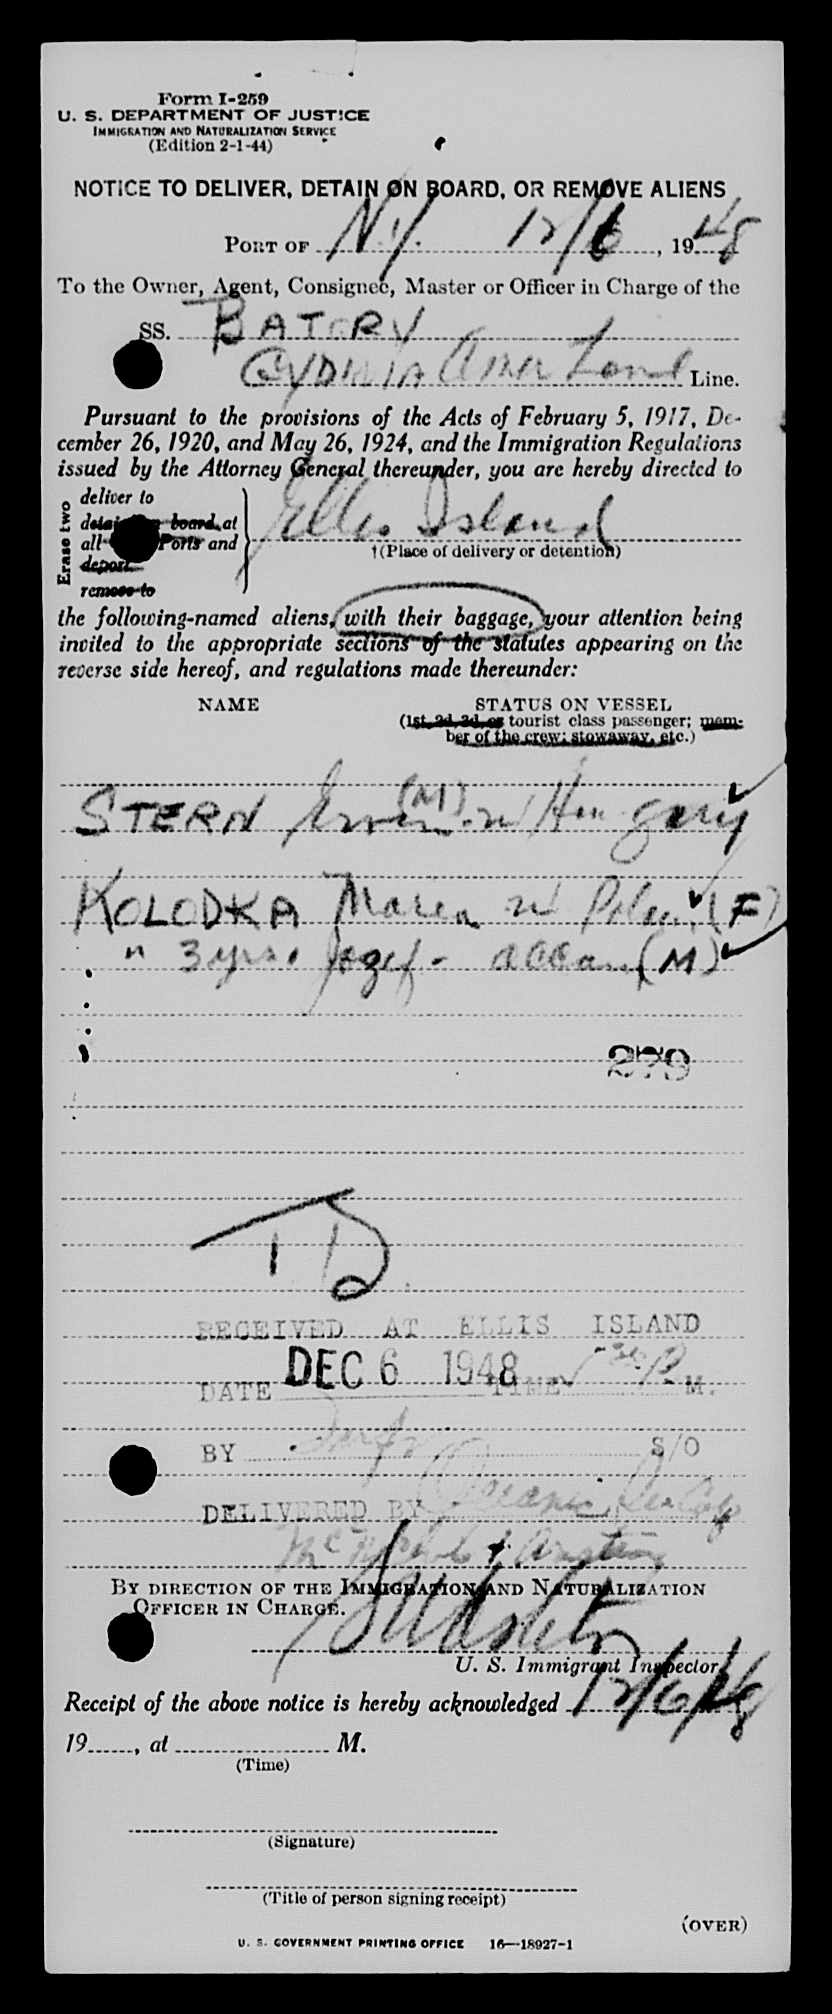 Form I-259
U. S. DEPARTMENT OF JUSTICE
IMMIGRATION AND NATURALIZATION SERVICE
(Edition 2-1-44)
NOTICE TO DELIVER, DETAIN ON BOARD, OR REMOVE ALIENS
PORT OF N.Y. 12/6, 1948
To the Owner, Agent, Consignee, Master or Officer in Charge of the
SS. BATORY
GYDNIA Amer Line.
Pursuant to the provisions of the Acts of February 5, 1917, De-
cember 26, 1920, and May 26, 1924, and the Immigration Regulations
issued by the Attorney General thereunder, you are hereby directed to
Erase two
deliver to
detain on board at
all Ports and
deport
remove to
Ellis Island
†(Place of delivery or detention)
the following-named aliens, with their baggage, your attention being
invited to the appropriate sections of the statutes appearing on the
reverse side hereof, and regulations made thereunder:
NAME STATUS ON VESSEL
(1st, 2d, 3d, or tourist class passenger; mem-
ber of the crew; stowaway, etc.)
STERN (M) Hungary
KOLODKA Maria (F)
" 3 yrs. Jozef - accom. (M)
279
RECEIVED AT ELLIS ISLAND
DATE DEC 6 1948 TIME 5 30 P M.
BY S/O
DELIVERED BY Oceanic
BY DIRECTION OF THE IMMIGRATION AND NATURALIZATION
OFFICER IN CHARGE.
U. S. Immigrant Inspector
Receipt of the above notice is hereby acknowledged 12/6/48
19......, at .................... M.
(Time)
(Signature)
(Title of person signing receipt)
(OVER)
U. S. GOVERNMENT PRINTING OFFICE 16—18927-1